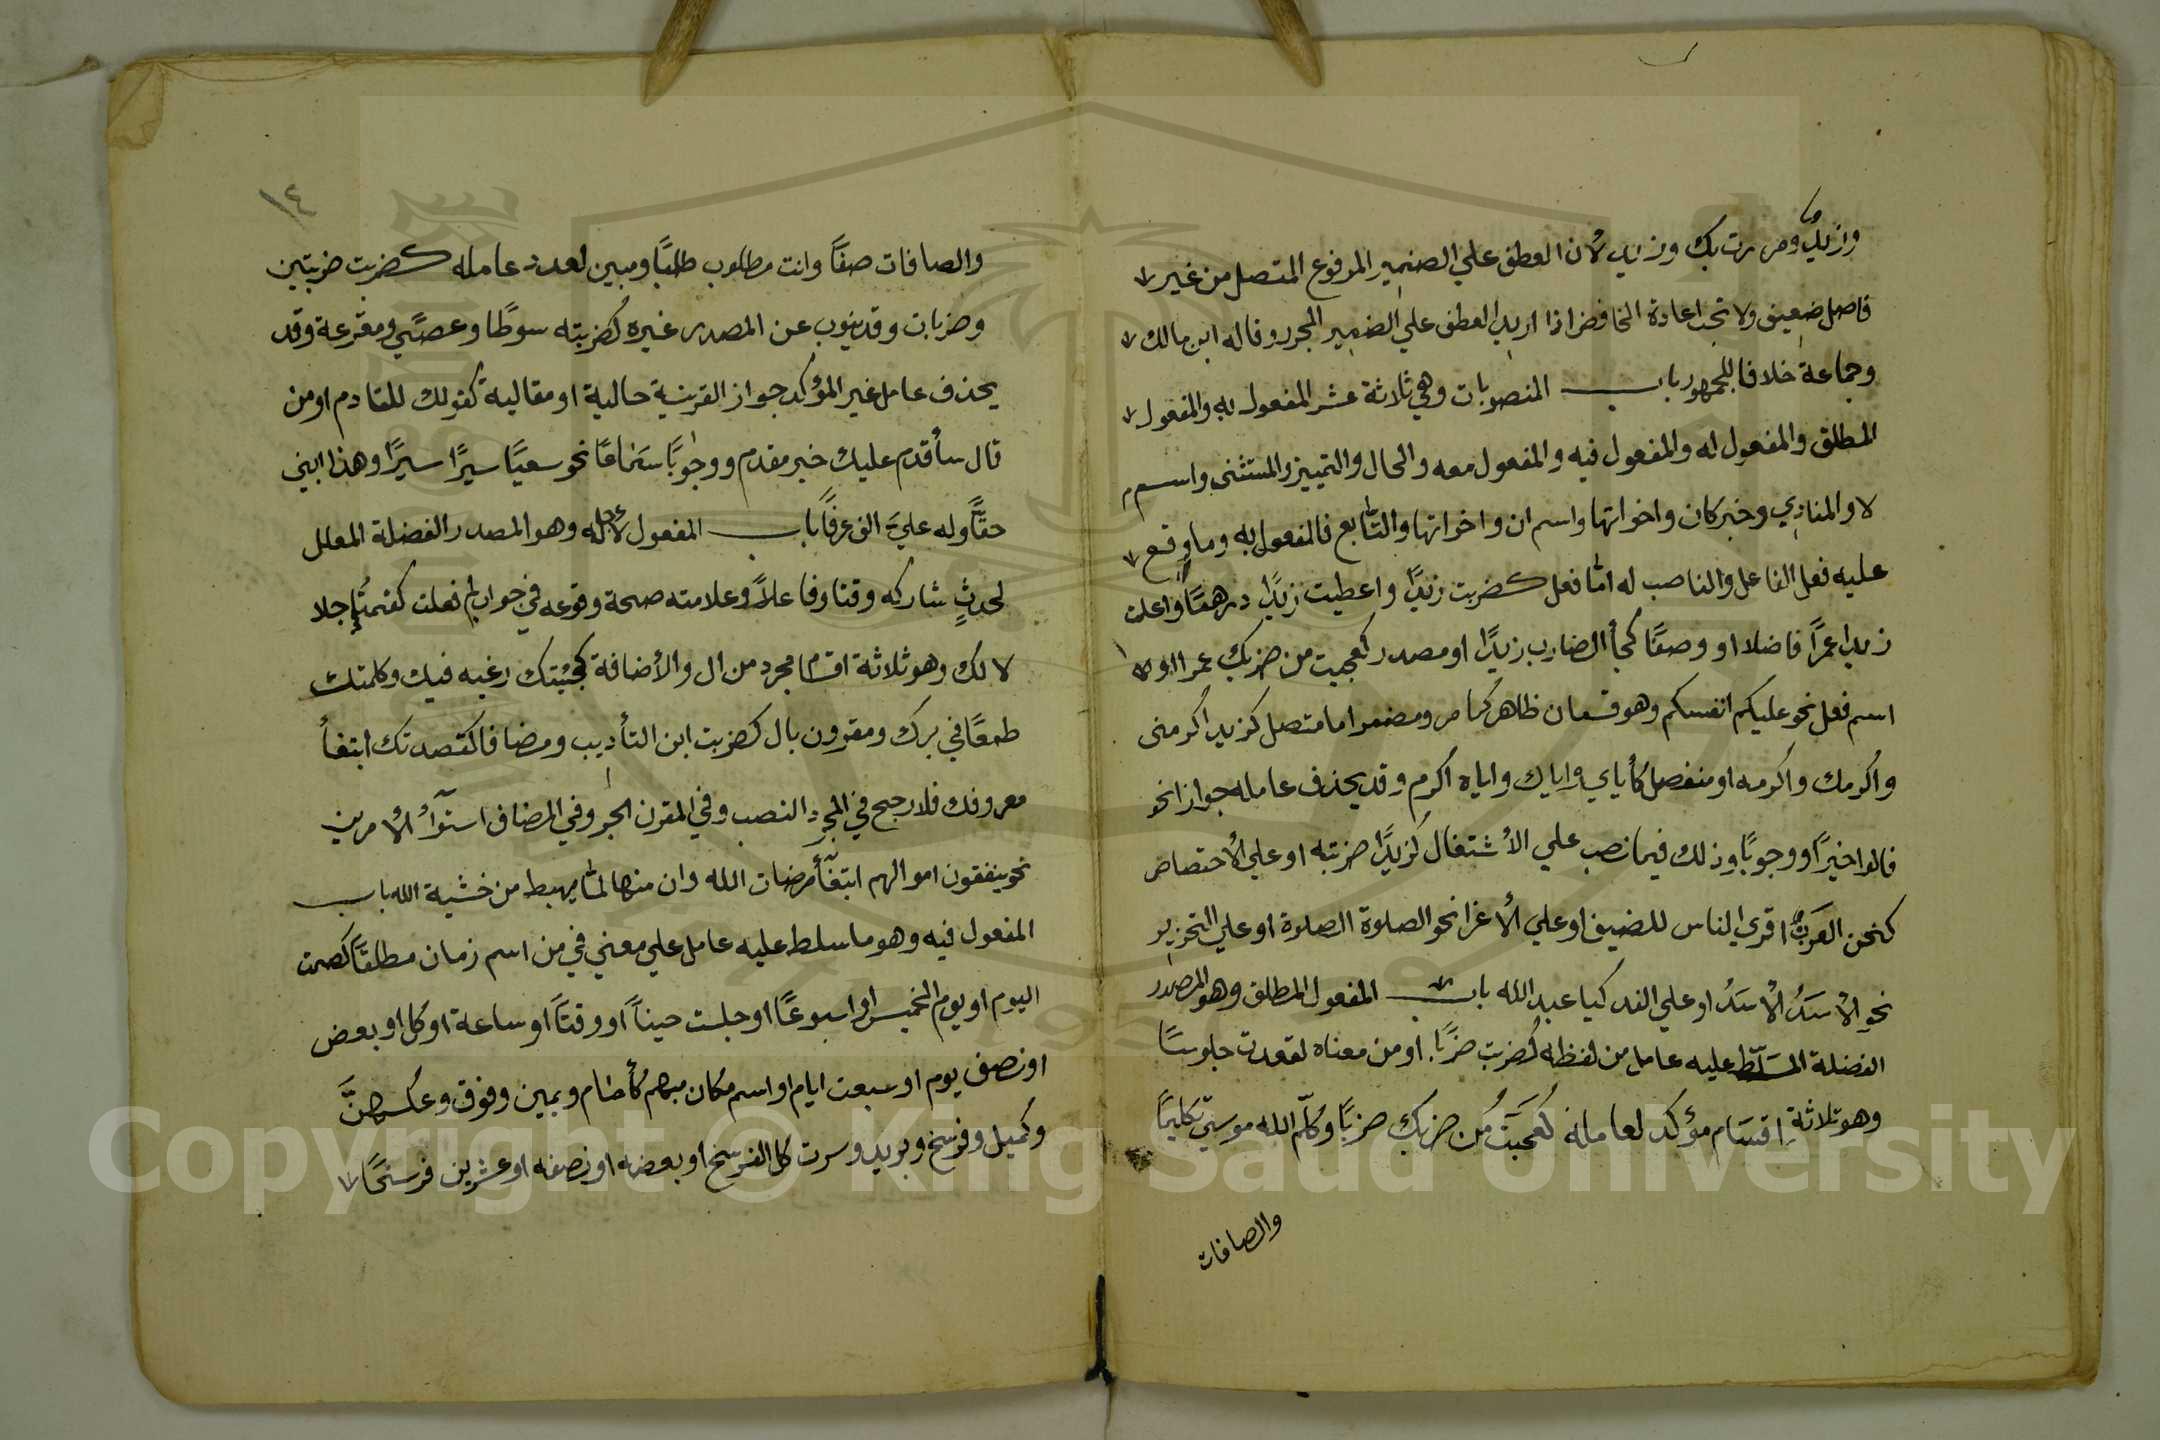 وزيد ومررت بك وزيد لأن العطف علي الضمير المرفوع المتصل من غير
فاصل ضعيف ولا تجب اعادة الخافض اذا اريد العطف علي الضمير المجرور قاله ابن مالك
وجماعة خلافا للجمهور باب المنصوبات وهي ثلاثة عشر المفعول به والمفعول
المطلق والمفعول له والمفعول فيه والمفعول معه والحال والتمييز والمستثني واسم
لا والمنادي وخبر كان واخواتها واسم ان واخواتها والتابع فالمفعول به وما وقع
عليه فعل الفاعل والناصب له اما فعل كضربت زيدًا واعطيت زيدًا درهمًا واعلمت
زيدا عمرًا فاضلا او وصفًا كجأ الضارب زيدًا او مصدر كعجبت من ضربك عمرا او
اسم فعل نحو عليكم انفسكم وهو قسمان ظاهر كما مر ومضمر اما متصل كزيد اكرمني
واكرمك واكرمه او منفصل كأياي واياك واياه اكرم وقد يحذف عامله جوازا نحو
قالوا خيرًا ووجوبًا وذلك فيما نصب علي الأشتغال كزيدًا ضربته او علي الأختصاص
كنحن العرب اقري الناس للضيف او علي الأغرا نحو الصلوة الصلوة او علي التحزير
نحو الأسَدَ الأسَدَ او علي الندا كيا عبد الله باب المفعول المطلق وهو المصدر
الفضلة المسَلّط عليه عامل من لفظه كضربت ضربًا او من معناه لقعدت جلوسًا
وهو ثلاثة اقسَام مؤكد لعامله كعَجبَت من ضربك ضربًا وكلّم الله موسي تكليمًا
والصافات
١٤
والصافات صفًا وانت مطلوب طلبًا ومبين لعدد عامله كضربت ضربتين
وضربات وقد ينوب عن المصدر غيره كضربته سوطًا وعصًي ومقرعة وقد
يحذف عامل غير المؤكد جواز القرينة حالية او مقالية كقولك للقادم او من
قال سأقدم عليك خير مقدم ووجوبًا سَماعًا نحو سعيًا سيرًا سيرًا وهذا ابني
حقًّا وله عليَ الف عرفًا باب المفعول لأجله وهو المصدر الفضلة المعلل
لحدثٍ شاركه وقتا وفاعلاً وعلامته صحة وقوعه في جواب لم فعلت كقمت إجلا
لا لك وهو ثلاثة اقسام مجرد من ال والأضافة كجئتك رغبه فيك وكلمتك
طمعًا في برك ومقرون بال كضربت ابن التأديب ومضافا كقصدتك ابتغأ
معروفك فلا رجح في المجرد النصب وفي المقرن الجر وفي المضاف استوآء الأمرين
نحو ينفقون اموالهم ابتغآء مرضات الله وان منها لما يهبط من خشية الله باب
المفعول فيه وهو ما سلط عليه عامل علي معني في من اسم زمان مطلقًا كصمت
اليوم او يوم الخميس او اسبوعًا او جلست حيناً او وقتًا او ساعة او كل او بعض
او نصف يوم او سبعت ايام او اسم مكان مبهم كأمام ويمين وفوق وعكسهنَّ
وكميل وفرسخ وبريد وسرت كل الفرسخ او بعضه او نصفه او عشرين فرسخًا
Copyright © King Saud University